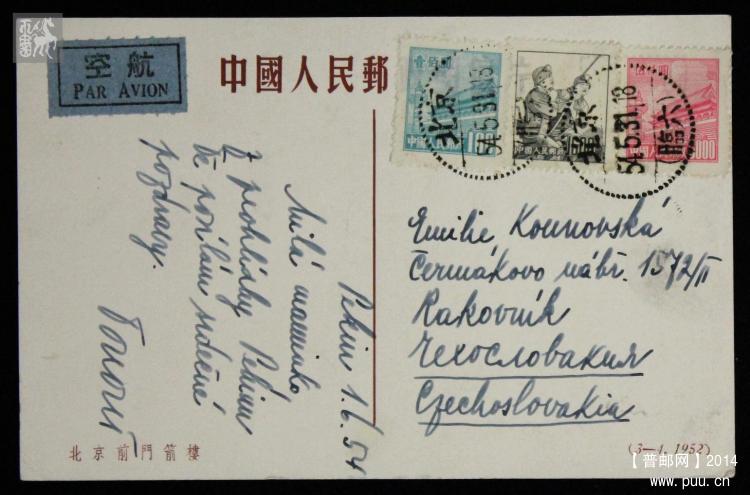 空航
PAR AVION
中國人民郵
北京
54.5.31.18
北京
54.5.31.18
Pekin 1.6.54
Milá maminko
z prohlídky Pekinu
Ti posílám srdečné
pozdravy.
Emilie Kounovská
Čermákovo nábř. 1572/II
Rakovník
Чехословакия
Czechoslovakia
北京前門箭樓
(3—1.1952)
【普邮网】2014
www.puu.cn